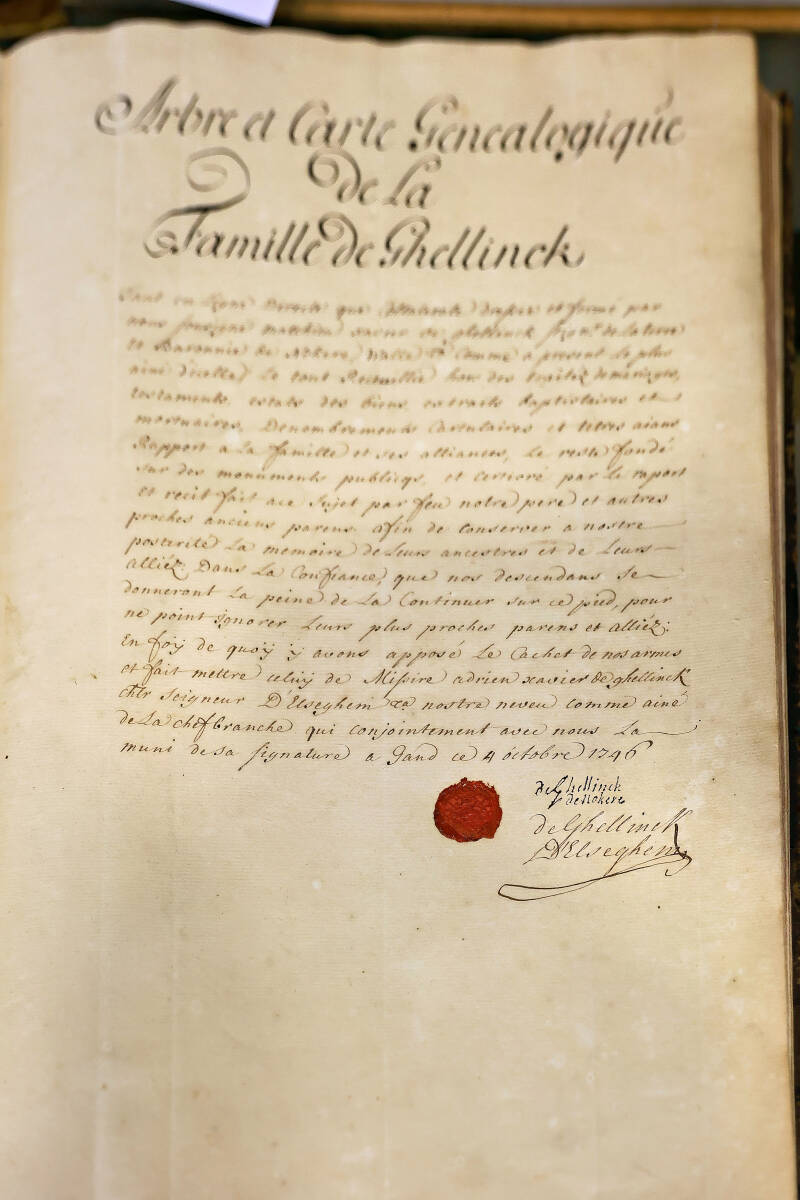 Arbre et Carte Genealogique
de La
Famille de Ghellinck
Tant en Ligne Directe que Collaterale dressée et formé par
nous soussigné matthieu xavier de ghellinck de la terre
et Baronnie de Nokere, Walle &a comme a present le plus
ainé d'icelle, Le tout Recueillie hors des traitez de mariages,
testaments, estats des biens, extraits baptistaires et
mortuaires, Denombrements Cartulaires et titres aians
Rapport a La famille et ses alliances, Le reste fondé
sur des monuments publicqs, et certioré par Le raport
et recit fait ace Sujet par feu notre pere et autres
proches anciens parens. afin de conserver a nostre
posterité La memoire de Leurs ancestres et de Leurs
alliéz: Dans La Confiance, que nos descendans Se
donneront La peine de La Continuer sur ce pied, pour
ne point ignorer Leurs plus proches parens et alliéz:
En foÿ de quoÿ ÿ avons apposé Le Cachet de nos armes
et fait mettre celuÿ de Messire adrien xavier de ghellinck
chlr Seigneur D'Elseghem &a nostre neveu comme ainé
de La chef branche qui conjointement avec nous La
muni de sa signature a gand ce 4 octobre 1746
de Ghellinck
de nokere
de Ghellinck
D'Elseghem